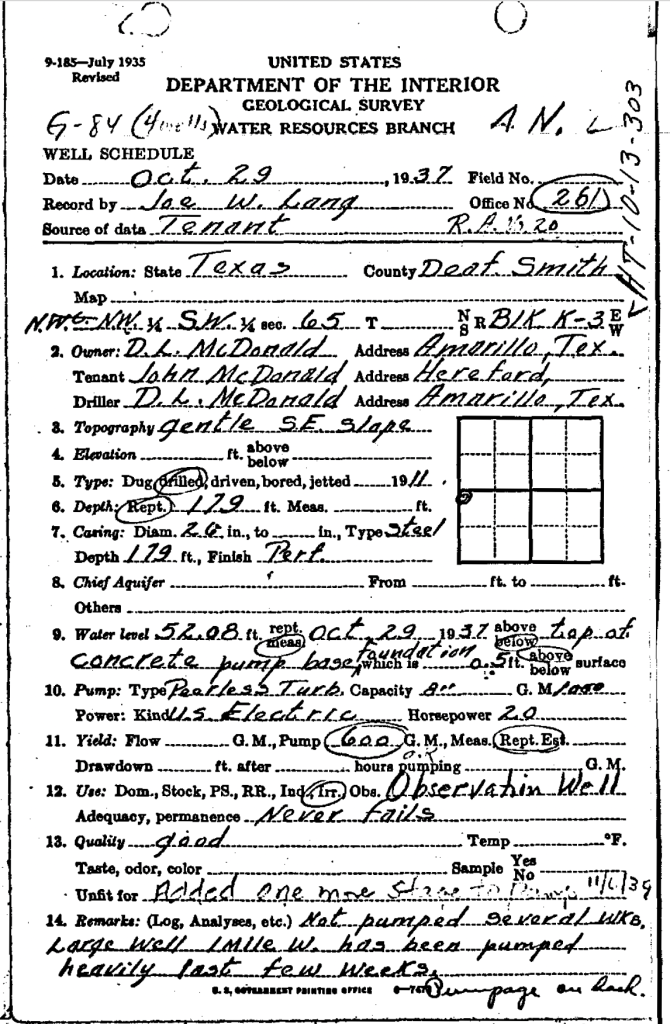 9-185—July 1935
Revised
UNITED STATES
DEPARTMENT OF THE INTERIOR
GEOLOGICAL SURVEY
G-84 (4 wells) WATER RESOURCES BRANCH A. N.
HT-10-13-303
WELL SCHEDULE
Date Oct. 29, 1937 Field No.
Record by Joe W. Lang Office No. 261
Source of data Tenant
1. Location: State Texas County Deaf Smith
Map
NW ¼ S.W. ¼ sec. 65 T N S R Blk K-3 E W
2. Owner: D. L. McDonald Address Amarillo, Tex.
Tenant John McDonald Address Hereford,
Driller D. L. McDonald Address Amarillo, Tex.
3. Topography gentle S.E. slope
4. Elevation ft. above below
5. Type: Dug, drilled, driven, bored, jetted 1911
6. Depth: Rept. 179 ft. Meas. ft.
7. Casing: Diam. 26 in., to in., Type Steel
Depth 179 ft., Finish Perf.
8. Chief Aquifer From ft. to ft.
Others
9. Water level 52.08 ft. rept. meas. Oct 29 1937 above below top of
concrete pump base foundation which is 0.5 ft. above below surface
10. Pump: Type Peerless Turb. Capacity G. M. 1000
Power: Kind U.S. Electric Horsepower 20
11. Yield: Flow G. M., Pump 600 G. M., Meas., Rept. Est.
Drawdown ft. after hours pumping G. M.
12. Use: Dom., Stock, PS., RR., Ind., Irr., Obs. Observation Well
Adequacy, permanence Never fails
13. Quality good Temp °F.
Taste, odor, color Sample Yes No
Unfit for Added one more Stage to Pump 11/6/39
14. Remarks: (Log, Analyses, etc.) Not pumped several wks.
Large well 1 mile W. has been pumped
heavily last few weeks.
U. S. GOVERNMENT PRINTING OFFICE Pumpage on back.